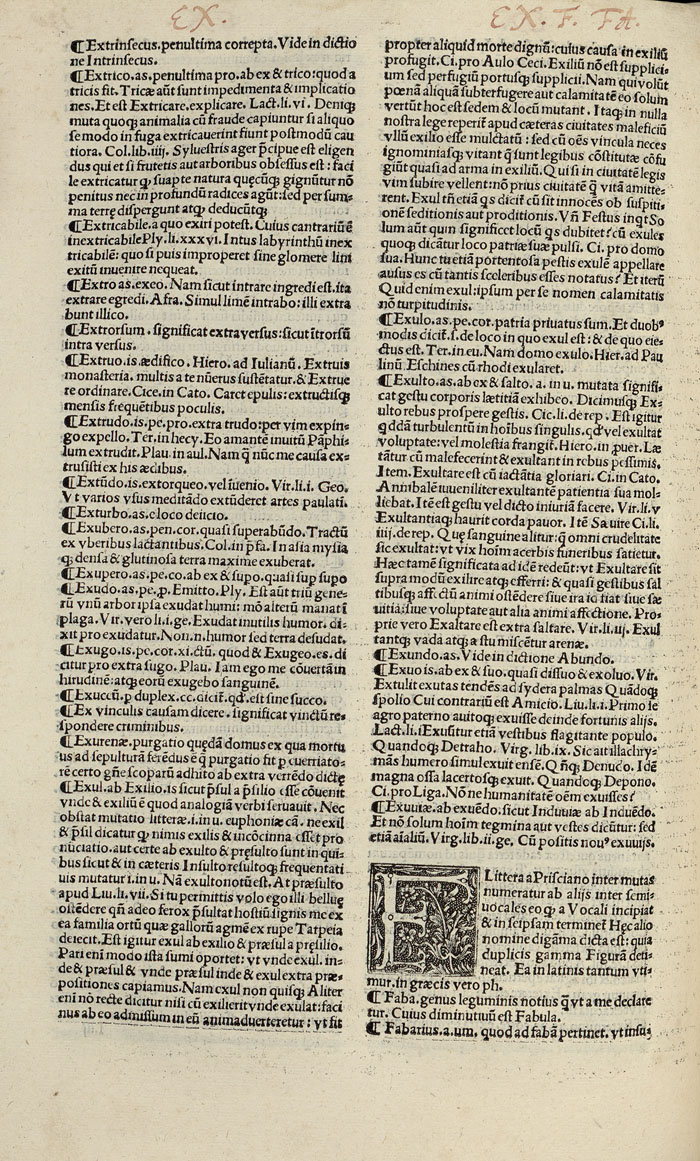 EX.
EX. F. FA.
¶Extrinsecus.penultima correpta.Vide in dictio
ne Intrinsecus.
¶Extrico.as.penultima pro.ab ex & trico:quod a
tricis fit.Tricæ aūt sunt impedimenta & implicatio
nes.Et est Extricare.explicare. Lact.li.vi. Deniq;
muta quoq; animalia cū fraude capiuntur si aliquo
se modo in fuga extricauerint fiunt postmodū cau
tiora. Col.lib.iiij. Syluestris ager p̄cipue est eligen
dus qui et si frutetis aut arboribus obsessus est : faci
le extricatur q suapte natura quęcūq; gignūtur nō
penitus nec in profundū radices agūt:sed per sum-
ma terrę dispergunt atq; deducūtq;
¶Extricabile.a quo exiri potest. Cuius cantrariū ē
inextricabile Ply.li.xxxvi. Intus labyrinthū inex
tricabilē: quo si puis improperet sine glomere lini
exitū inuenire nequeat.
¶Extro as.exeo. Nam sicut intrare ingredi est.ita
extrare egredi. Afra. Simul limē intrabo: illi extra
bunt illico.
¶Extrorsum. significat extra versus:sicut ītrorsū
intra versus.
¶Extruo.is.ædifico. Hiero. ad Iulianū. Extruis
monasteria. multis a te nūerus sustētatur.& Extrue
re ordinare. Cice.in Cato. Caret epulis: extructisq;
mensis frequētibus poculis.
¶Extrudo.is.pe.pro.extra trudo:per vim expin-
go expello. Ter.in hecy. Eo amantē inuitū Pāphi-
lum extrudit. Plau. in aul. Nam q̄ nūc me causa ex-
trusisti ex his ædibus.
¶Extūdo.is.extorqueo.vel īuenio. Vir.li.i. Geo.
Vt varios vsus meditādo extūderet artes paulati.
¶Exturbo.as.eloco deiicio.
¶Exubero.as.pen.cor.quasi superabūdo. Tractū
ex vberibus lactantibus.Col.in p̄fa. In asia mysia
q; densa & glutinosa terra maxime exuberat.
¶Exupero.as.pe.co.ab ex & supo.quasi sup supo
¶Exudo.as.pe.p. Emitto. Ply. Est aūt triū gene-
rū vnū arbor ipsa exudat humi: mō alterū manati
plaga. Vir.vero li.i.ge. Exudat inutilis humor. di-
xit pro exudatur. Non.n.humor sed terra desudat.
¶Exugo.is.pe.cor.xi.ctū. quod & Exugeo.es.di
citur pro extra sugo. Plau. Iam ego me cōuertā in
hirudinē:atq; eorū exugebo sanguinē.
¶Exuccū.p duplex.cc.dicit̄.qd̓.est sine succo.
¶Ex vinculis causam dicere. significat vinctū re-
spondere criminibus.
¶Exurenæ.purgatio quędā domus ex qua mortu
us ad sepulturā ferēdus ē q̄ purgatio fit p euerriato-
rē certo gn̄e scoparū adhito ab extra verrēdo dictę
¶Exul.ab Exilio.is sicut p̄sul a p̄silio esse cōuenit
vnde & exiliū ē quod analogiā verbi seruauit. Nec
obstat mutatio litteræ.i.in u. euphoniæ cā. ne exil
& p̄sil dicatur q nimis exilis & incōcinna esset pro
nūciatio.aut certe ab exulto & pręsulto sunt in qui-
bus sicut & in cæteris Insulto resultoq; frequentati
uis mutatur i.in u. Nā exulto notū est. At præsulto
apud Liu.li.vii. Si tu permittis volo ego illi belluę
ostēdere qn̄ adeo ferox p̄sultat hostiū signis me ex
ea familia ortū quæ gallorū agmē ex rupe Tarpeia
deiecit.Est igitur exul ab exilio & præsul a pręsilio.
Pari eni modo ista sumi oportet: vt vnde exul. in-
de & præsul & vnde præsul inde & exul extra præ-
positiones capiamus. Nam exul non quisq; Aliter
eni nō recte dicitur nisi cū exilierit vnde exulat: faci
nus ab eo admissum in eū animaduerteretur : vt fit
propter aliquid morte dignū:cuius causa in exiliū
profugit.Ci.pro Aulo Ceci. Exiliū nō est supplici-
um sed perfugiū portusq; supplicii. Nam qui volūt
pœnā aliquā subterfugere aut calamitatē eo solum
vertūt hoc est sedem & locū mutant . Itaq; in nulla
nostra lege reperit̄ apud cæteras ciuitates maleficiū
vllū exilio esse mulctatū : sed cū oēs vincula neces
ignominiasq; vitant q̄ sunt legibus cōstitutæ cōfu
giūt quasi ad arma in exiliū. Qui si in ciuitatē legis
vim subire vellent:nō prius ciuitatē q̄ vitā amitte-
rent. Exul tn̄ etiā qs dicit̄ cū sit innocēs ob suspiti-
onē seditionis aut proditionis. Vn̄ Festus inqt So
lum aūt quin significet locū qs dubitet?cū exules
quoq; dicātur loco patriæ suæ pulsi. Ci. pro domo
sua. Hunc tu etiā portentosa pestis exulē appellare
ausus es cū tantis sceleribus esses notatus? Et iterū
Quid enim exul:ipsum per se nomen calamitatis
nō turpitudinis.
¶Exulo.as.pe.cor.patria priuatus sum. Et duobꝰ
modis dicit̄.s.de loco in quo exul est: & de quo eie-
ctus est. Ter.in eu. Nam domo exulo. Hier.ad Pau
linū. Eschines cū rhodi exularet.
¶Exulto.as.ab ex & salto. a. in u. mutata signifi-
cat gestu corporis lætitiā exhibeo. Dicimusq; Ex-
ulto rebus prospere gestis. Cic.li.de rep. Est igitur
q̄ddā turbulentū in hoībus singulis.qd̓ vel exultat
voluptate:vel molestia frangit̄. Hiero.in puer. Læ
tātur cū malefecerint & exultant in rebus pessimis.
Item. Exultare est cū iactātia gloriari. Ci.in Cato.
Annibalē iuueniliter exultantē patientia sua mol-
liebat. Itē est gestu vel dicto iniuriā facere. Vir.li.v
Exultantiaq; haurit corda pauor. Itē Sæuire Ci.li.
iiij.de rep. Quę sanguine alitur:q̄ omni crudelitate
sic exultat:vt vix hoīm acerbis funeribus satietur.
Hæc tamē significata ad idē redeūt:vt Exultare sit
supra modū exilire atq; efferri: & quasi gestibus sal
tibusq; affectū animi ostēdere siue ira id fiat siue sæ
uitia:siue voluptate aut alia animi affectione. Pro-
prie vero Exaltare est extra saltare. Vir.li.iij. Exul
tantq; vada atq; æstu miscētur arenæ.
¶Exundo.as.Vide in dictione Abundo.
¶Exuo is.ab ex & suo.quasi dissuo & exoluo. Vir.
Extulit exutas tendēs ad sydera palmas Quādoq;
spolio Cui contrariū est Amicio. Liu.li.i. Primo ie
agro paterno auitoq; exuisse deinde fortunis alijs.
Lact.li.i Exuūtur etiā vestibus flagitante populo.
Quandoq; Detraho. Virg. lib.ix. Sic ait illachry-
mās humero simul exuit ensē. Qn̄q; Denudo. Idē
magna ossa lacertosq; exuit. Quandoq; Depono.
Ci.pro Liga. Nōne humanitatē oēm exuisses?
¶Exuuiæ.ab exuēdo.sicut Induuiæ ab Induēdo.
Et nō solum hoīm tegmina aut vestes dicūtur: sed
etiā aīaliū. Virg.lib.ii.ge. Cū positis nouꝰ exuuijs.
F Littera a Prisciano inter mutas
numeratur ab alijs inter semi-
uocales eo q a Vocali incipiat
& in seipsam terminet̄ Hęc alio
nomine digāma dicta est: quia
duplicis gamma Figurā deti-
neat. Ea in latinis tantum vti-
mur.in græcis vero ph.
¶Faba.genus leguminis notius q̄ vt a me declare
tur. Cuius diminutiuū est Fabula.
¶Fabarius.a.um. quod ad fabā pertinet. vt insu;